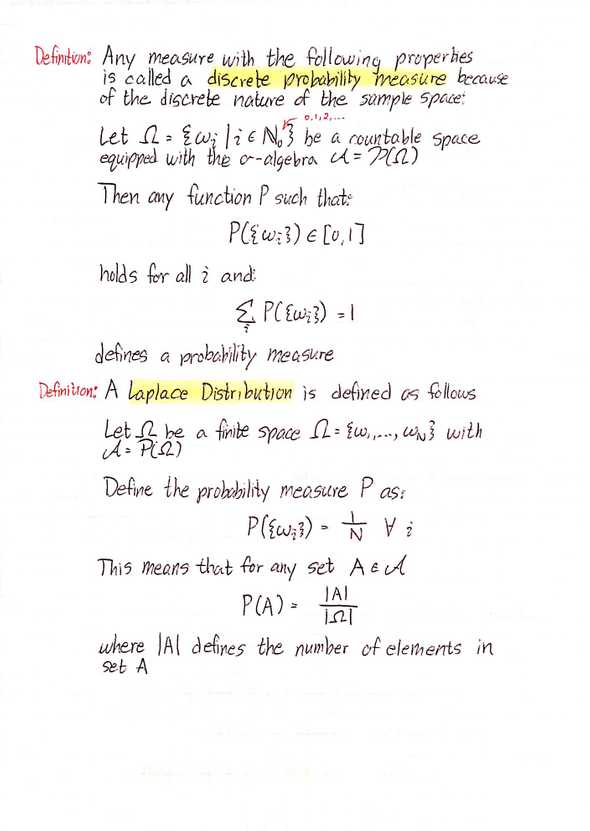 Definition: Any measure with the following properties
is called a discrete probability measure because
of the discrete nature of the sample space:
0,1,2,...
Let Ω = {ωᵢ | i ∈ ℕ₀} be a countable space
equipped with the σ-algebra 𝒜 = 𝒫(Ω)
Then any function P such that:
P({ωᵢ}) ∈ [0,1]
holds for all i and:
∑ᵢ P({ωᵢ}) = 1
defines a probability measure
Definition: A Laplace Distribution is defined as follows
Let Ω be a finite space Ω = {ω₁,..., ω_N} with
𝒜 = P(Ω)
Define the probability measure P as:
P({ωᵢ}) = 1/N ∀ i
This means that for any set A ∈ 𝒜
P(A) = |A|/|Ω|
where |A| defines the number of elements in
set A